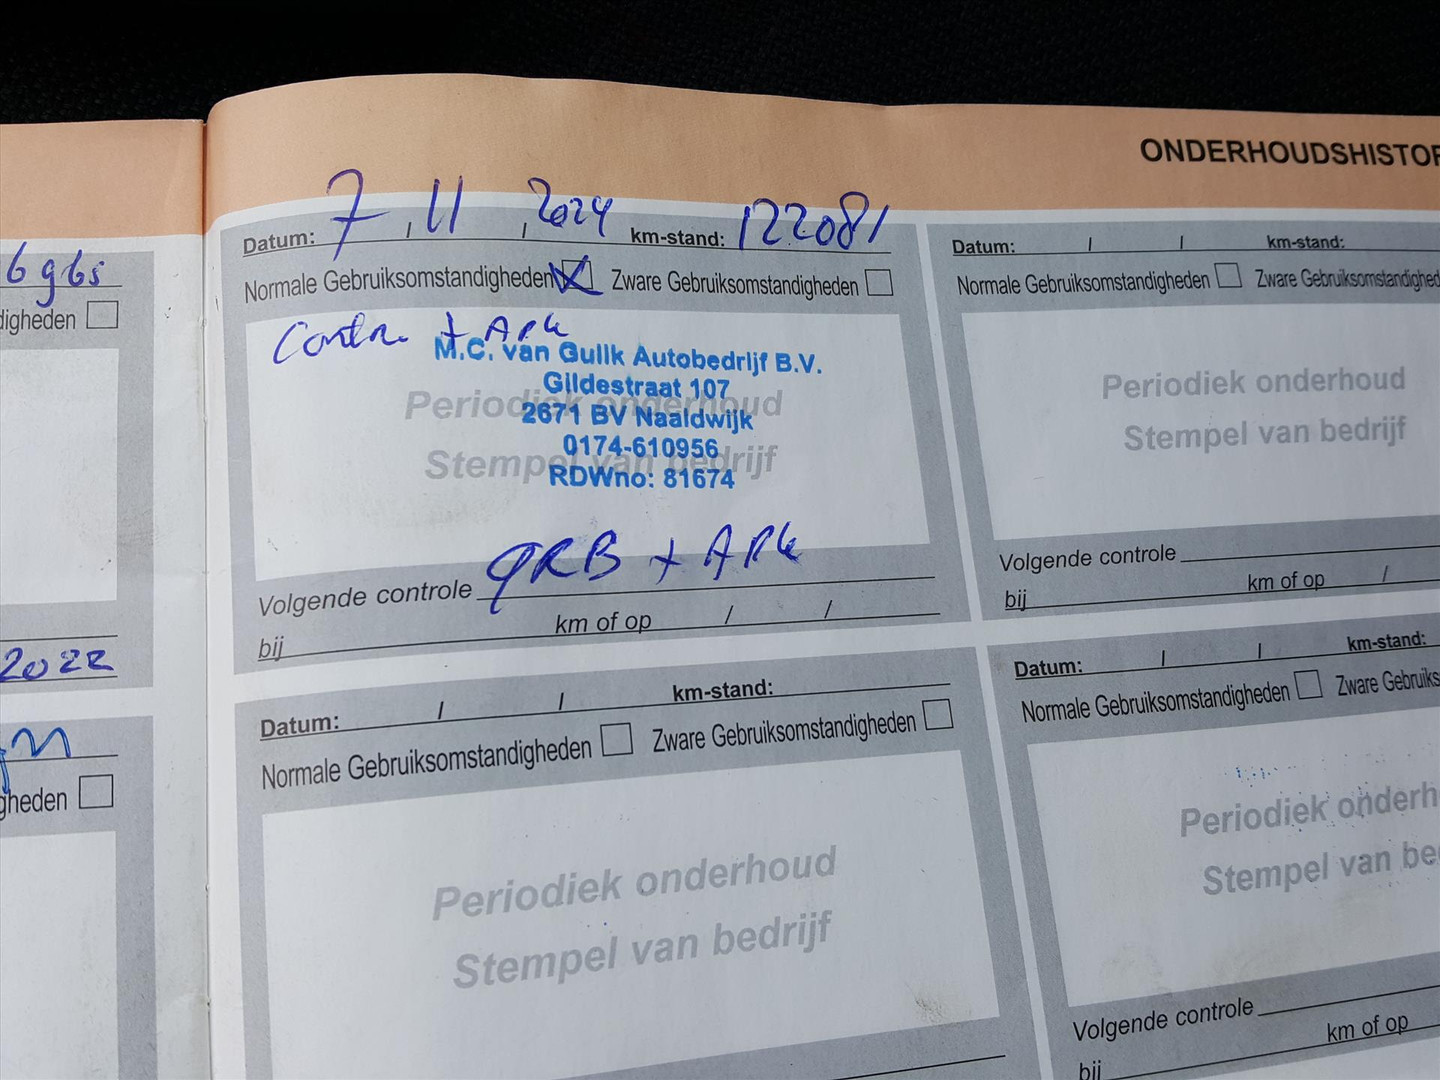 ONDERHOUDSHISTOR
6965
digheden
2022
gheden
Datum: 7 / 11 / 2024 km-stand: 122081
Normale Gebruiksomstandigheden Zware Gebruiksomstandigheden
+ APK
M.C. van Gulik Autobedrijf B.V.
Gildestraat 107
2671 BV Naaldwijk
0174-610956
RDWno: 81674
Periodiek onderhoud
Stempel van bedrijf
Volgende controle GRB + APK
bij km of op / /
Datum: / / km-stand:
Normale Gebruiksomstandigheden Zware Gebruiksomstandighed
Periodiek onderhoud
Stempel van bedrijf
Volgende controle
bij km of op /
Datum: / / km-stand:
Normale Gebruiksomstandigheden Zware Gebruiksomstandigheden
Periodiek onderhoud
Stempel van bedrijf
Datum: / / km-stand:
Normale Gebruiksomstandigheden Zware Gebruiks
Periodiek onderh
Stempel van be
Volgende controle
bij km of op